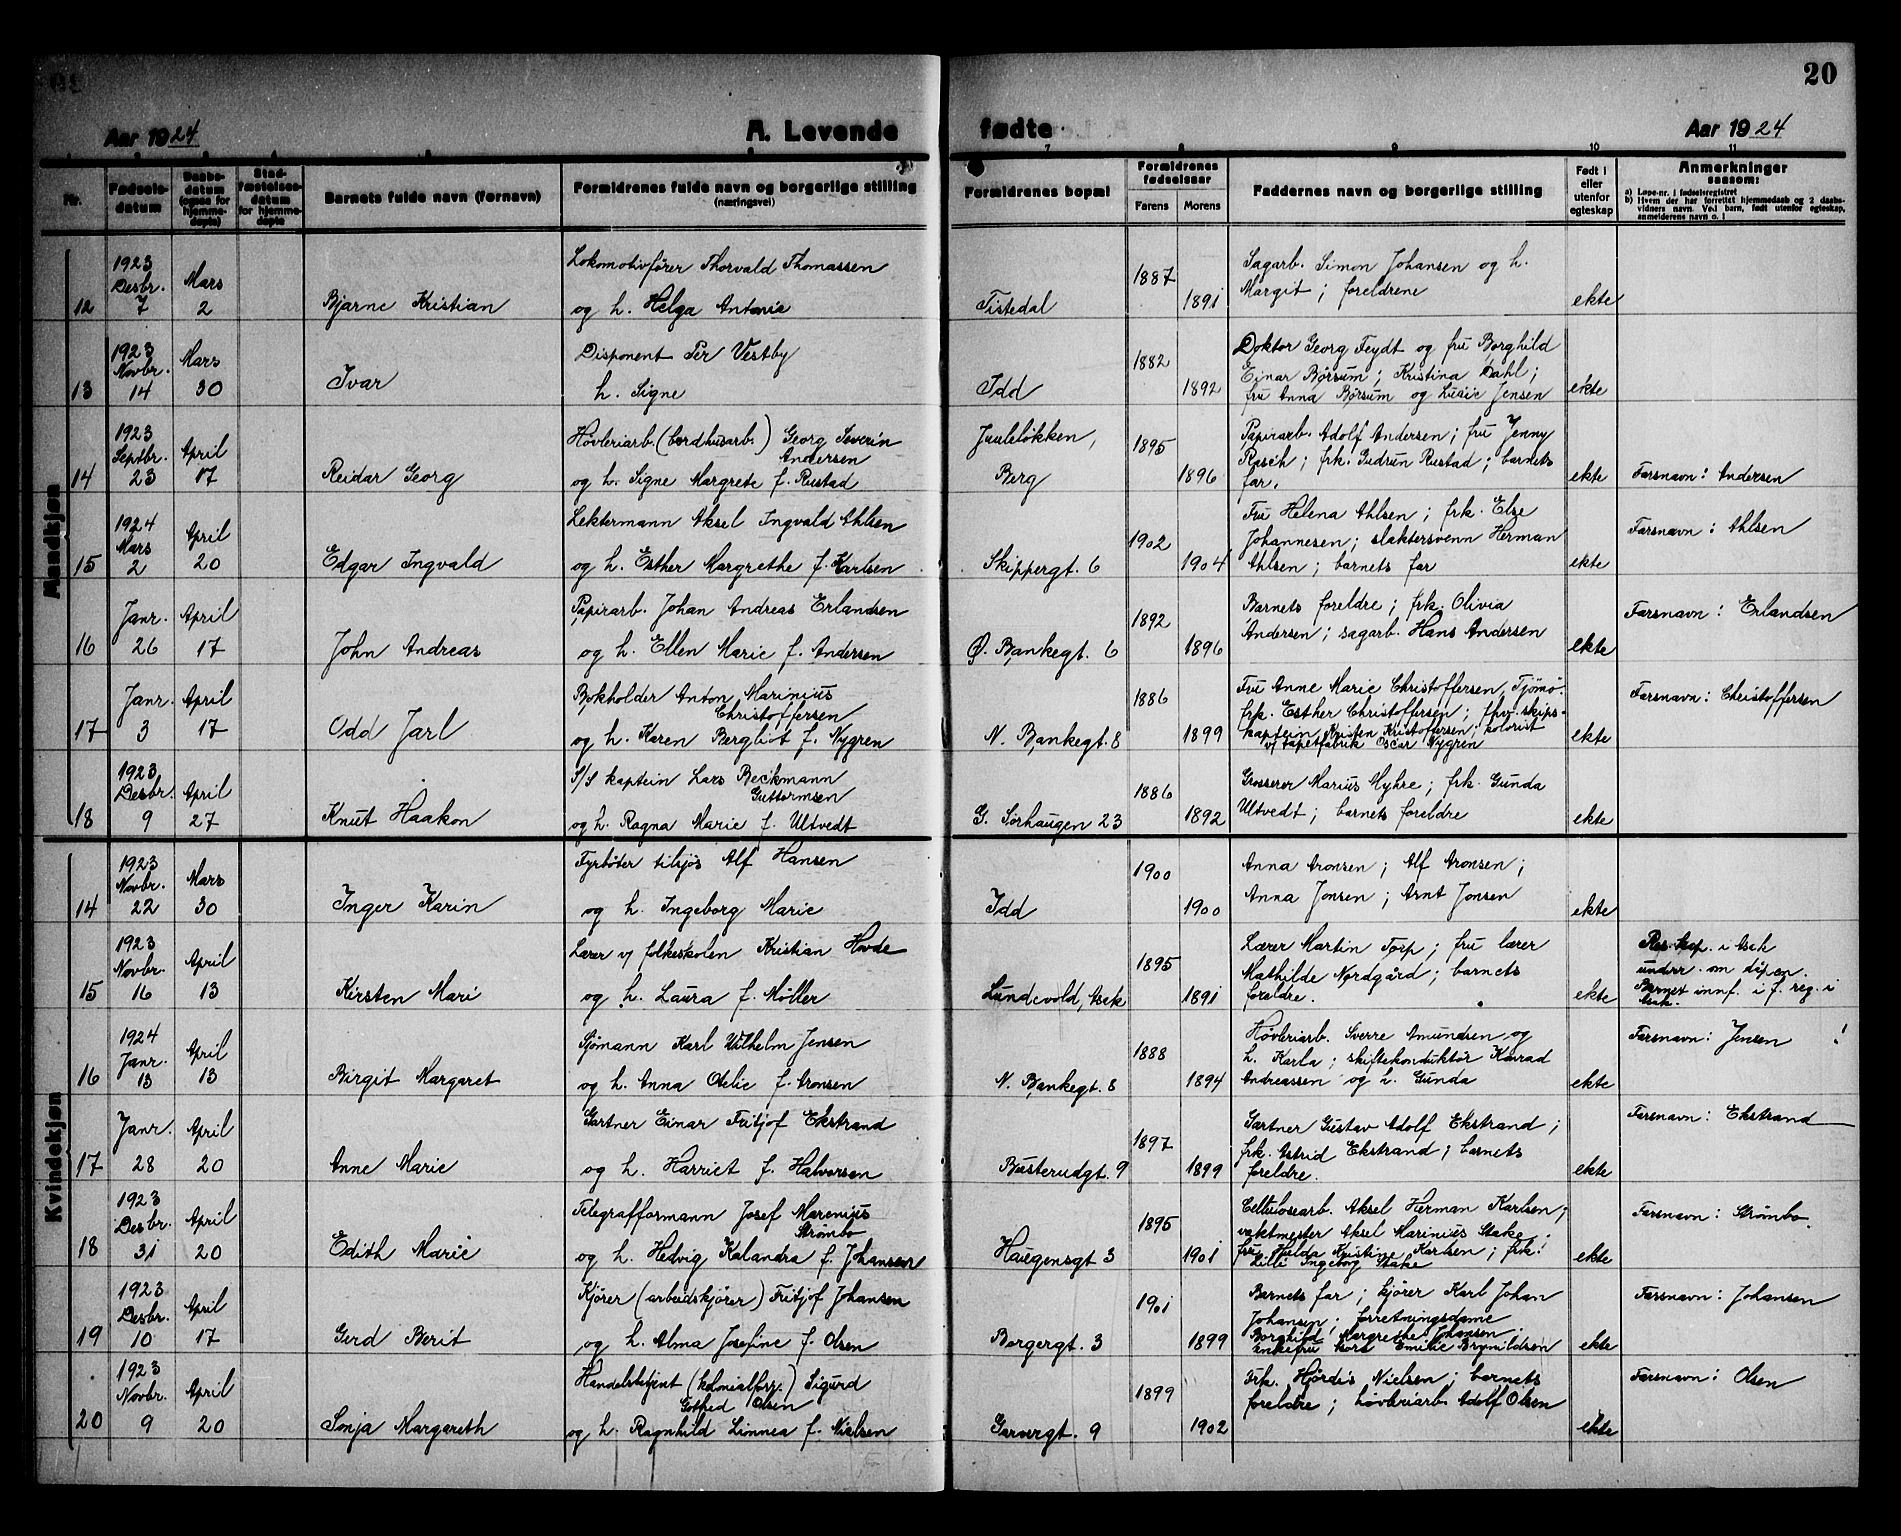 20
Aar 1924
A. Levende
fødte
Aar 1924
7 8 9 10 11
Nr.
Fødsels-
datum
Daabs-
datum
(ogsaa for
hjemme-
døpte)
Stad-
fæstelses-
datum
for hjemme-
døpte
Barnets fulde navn (fornavn)
Forældrenes fulde navn og borgerlige stilling
(næringsvei)
Forældrenes bopæl
Forældrenes
fødselsaar
Farens Morens
Faddernes navn og borgerlige stilling
Født i
eller
utenfor
egteskap
Anmerkninger
saasom:
a) Løpe-nr. i fødselsregistret
b) Hvem der har forrettet hjemmedaab og 2 daabs-
vidners navn. Ved barn, født utenfor egteskap,
anmelderens navn o. l.
Mandkjøn
1923
Desbr. Mars Lokomotivfører Thorvald Thomassen 1887 Sagarb. Simon Johansen og h.
12 7 2 Bjarne Kristian og h. Helga Antonie Tistedal 1891 Margit; foreldrene ekte
1923
Novbr. Mars Disponent Per Vestby 1882 Doktor Georg Feydt og fru Borghild
13 14 30 Ivar h. Signe Idd 1892 Einar Børsum; Kristina Dahl;
fru Anna Børsum og Lucie Jensen ekte
1923
Septbr. April Høvleriarb. (bordhusarb.) Georg Severin Juuleløkken, 1895 Papirarb. Adolf Andersen; fru Jenny
Andersen
14 23 17 Reidar Georg og h. Signe Margrete f. Rustad Berg 1896 Rasch; frk. Gudrun Rustad; barnets
far. ekte Farsnavn: Andersen
1924
Mars April Lektermann Aksel Ingvald Ahlsen 1902 Fru Helena Ahlsen; frk. Else
Johannesen; slaktersvenn Herman Farsnavn: Ahlsen
15 2 20 Edgar Ingvald og h. Esther Margrethe f. Karlsen Skippergt. 6 1904 Ahlsen; barnets far ekte
Janr. April Papirarb. Johan Andreas Erlandsen 1892 Barnets foreldre; frk. Olivia Farsnavn: Erlandsen
16 26 17 John Andreas og h. Ellen Marie f. Andersen Ø. Bankegt. 6 1896 Andersen; sagarb. Hans Andersen ekte
Janr. April Bokholder Anton Marinius 1886 Fru Anne Marie Christoffersen, Tjømø; Farsnavn: Christoffersen
Christoffersen frk. Esther Christoffersen; fhv. skips-
17 3 17 Odd Jarl og h. Karen Bergliot f. Nygren N. Bankegt. 8 1899 kaptein Kristen Kristoffersen; kolorist
v/ tapetfabrik Oscar Nygren ekte
1923
Desbr. April S/S kaptein Lars Beckmann 1886 Grosserer Marius Myhre; frk. Gunda
Guttormsen
18 9 27 Knut Haakon og h. Ragna Marie f. Ultvedt G. Sørhaugen 23 1892 Ultvedt; barnets foreldre ekte
Kvindekjøn
1923
Novbr. Mars Fyrbøter tilsjøs Alf Hansen 1900 Anna Aronsen; Alf Aronsen;
14 22 30 Inger Karin og h. Ingeborg Marie Idd 1900 Anna Jonsen; Arnt Jonsen ekte
1923
Novbr. April Lærer v/ folkeskolen Kristian Hovde 1895 Lærer Martin Torp; fru lærer Res. kap. i Asak
Mathilde Nordgård; barnets underr. om dåpen.
15 16 13 Kirsten Mari og h. Laura f. Møller Lundevold, Asak 1891 foreldre. ekte Barnet innf. i f. reg. i
Asak.
1924
Janr. April Sjømann Karl Wilhelm Jensen 1888 Høvleriarb. Sverre Amundsen og Farsnavn: Jensen
h. Karla; skiftekonduktør Konrad
16 13 13 Birgit Margaret og h. Anna Otelie f. Aronsen N. Bankegt. 8 1894 Andreassen og h. Gunda ekte
Janr. April Gartner Einar Fritjof Ekstrand 1897 Gartner Gustav Adolf Ekstrand; Farsnavn: Ekstrand
frk. Astrid Ekstrand; barnets
17 28 20 Anne Marie og h. Harriet f. Halvorsen Busterudgt. 9 1899 foreldre. ekte
1923
Desbr. April Telegrafformann Josef Marenius 1895 Cellulosearb. Aksel Herman Karlsen; Farsnavn: Strømbo.
Strømbo vaktmester Aksel Marinius Stake;
18 31 20 Edith Marie og h. Hedvig Kalandra f. Johansen Haugensgt 3 1901 fru Hilda Kristine Karlsen; frk.
Lilli Ingeborg Stake ekte
1923
Desbr. April Kjører (arbeidskjører) Fritjof Johansen 1901 Barnets far; kjører Karl Johan Farsnavn: Johansen
Johansen; forretningsdame
19 10 17 Gerd Berit og h. Alma Josefine f. Olsen Borgergt. 3 1899 Borghild Margrethe Johansen;
enkefru Emilie Brynildsen ekte
1923
Novbr. April Handelsbetjent (kolonialforr.) Sigurd 1899 Frk. Hjørdis Nielsen; barnets Farsnavn: Olsen
Olsen foreldre; høvleriarb. Adolf Olsen
20 9 20 Sonja Margareth og h. Ragnhild Linnea f. Nielsen Garvergt. 9 1902 ekte